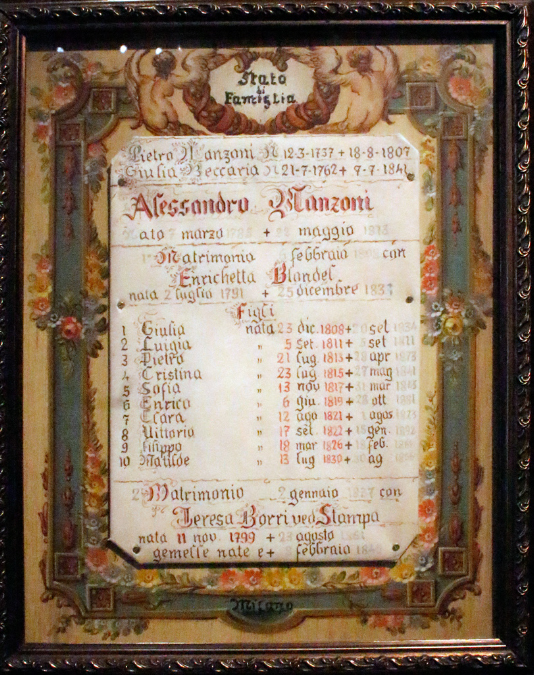 Stato
di
Famiglia
Pietro Manzoni N 12-3-1737 + 18-8-1807
Giulia Beccaria N 21-7-1762 + 7-7-1841
Alessandro Manzoni
Nato 7 marzo + 22 maggio
1º Matrimonio febbraio con
Enrichetta Blandel
nata 2 luglio 1791 + 25 dicembre 1833
Figli
1 Giulia nata 23 dic. 1808 + 20 set
2 Luigia " 5 set. 1811 + 5 set 1811
3 Pietro " 21 lug 1813 + 28 apr 1873
4 Cristina " 23 lug 1815 + 27 mag 1841
5 Sofia " 13 nov 1817 + 31 mar
6 Enrico " 6 giu. 1819 + 28 ott 1881
7 Clara " 12 ago 1821 + 1 agos
8 Vittoria " 17 set. 1822 + gen.
9 Filippo " 18 mar 1826 + feb.
10 Matilde " 13 lug 1830 + 30
2º Matrimonio 2 gennaio 1837 con
Teresa Borri ved Stampa
nata 11 nov. 1799 + 23 agosto 1861
gemelle nate e + febbraio
Milano